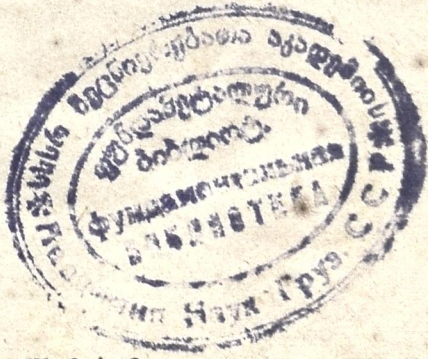 საქ. სსრ მეცნიერებათა აკადემიის
ფუნდამენტალური
ბიბლიოთ.
Фундаментальная
БИБЛИОТЕКА
Академия Наук Груз. ССР